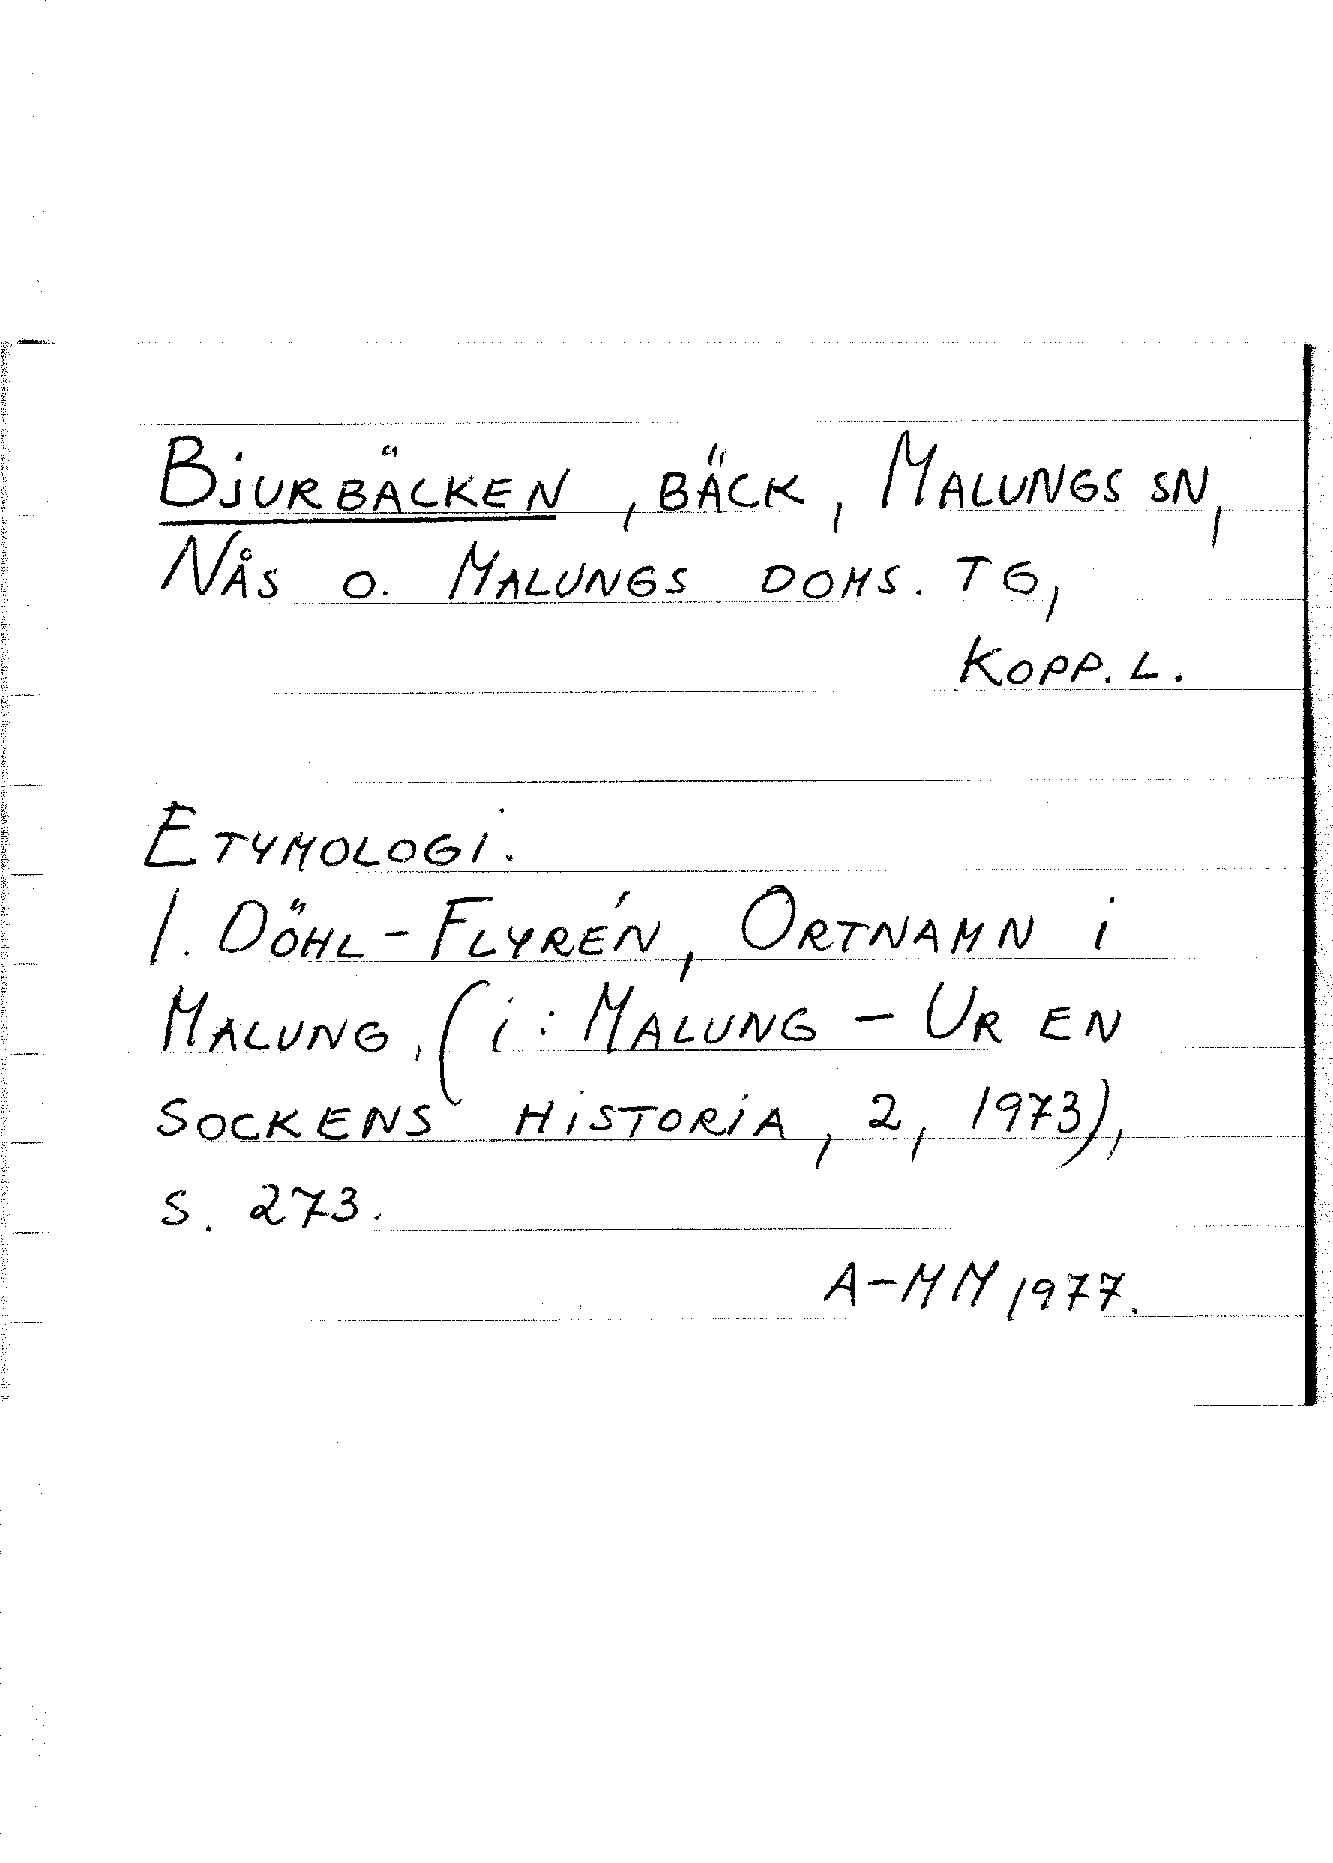 Bjurbäcken, bäck, Malungs sn,
Nås o. Malungs doms. tg,
Kopp. l.
Etymologi.
I. Döhl-Flyrén, Ortnamn i
Malung, (i: Malung – Ur en
sockens historia, 2, 1973),
s. 273.
A-MM 1977.